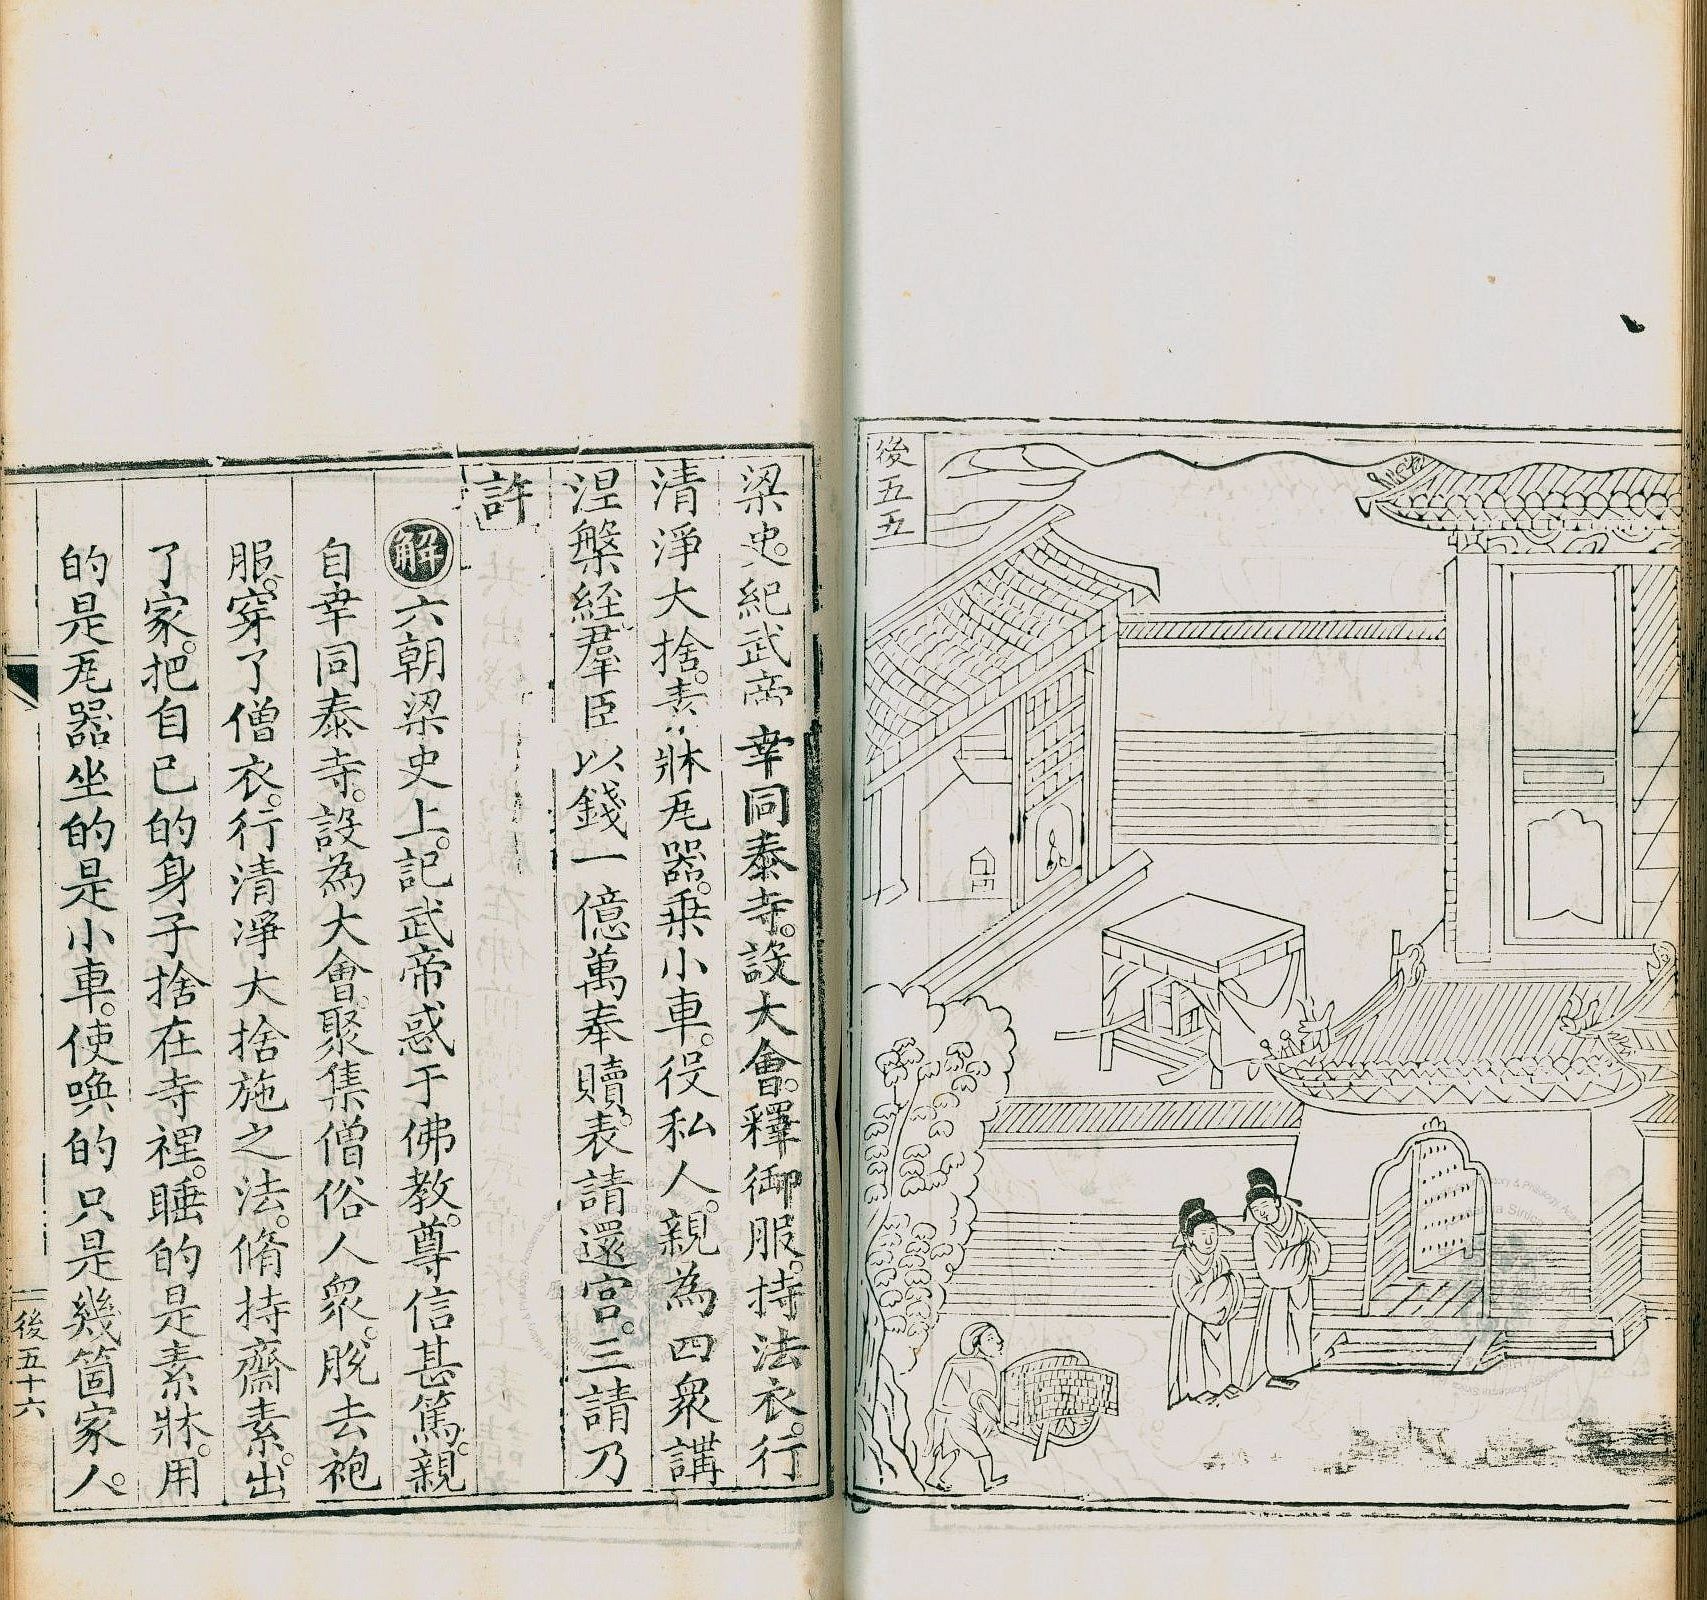 後五五
梁史紀武帝幸同泰寺。設大會。釋御服。持法衣。行
清淨大捨。素牀瓦器。乗小車。役私人。親為四衆講
涅槃經羣臣以錢一億萬奉贖。表請還宮。三請乃
許
解六朝梁史上。記武帝惑于佛教。尊信甚篤。親
自幸同泰寺。設為大會。聚集僧俗人衆。脫去袍
服。穿了僧衣。行清淨大捨施之法。脩持齋素。出
了家。把自已的身子捨在寺裡。睡的是素牀。用
的是瓦噐坐的是小車。使喚的只是幾箇家人。
後五十六